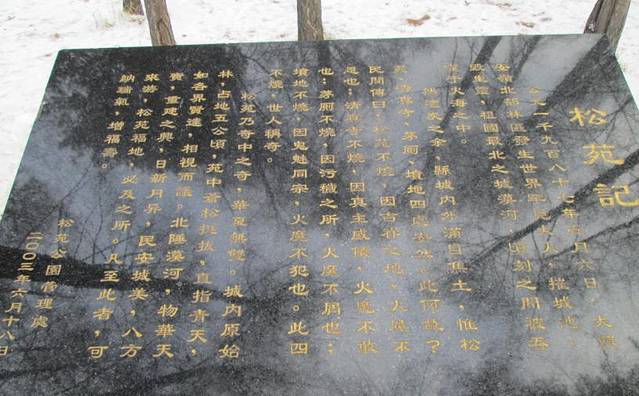 松苑記
公元一千九百八十七年五月六日，大興
安嶺北部林區發生世界罕見大火，摧城池，
毀生靈，祖國最北之城漠河，頃刻之間被吞
没于火海之中。
浩焚之余，縣城内外滿目焦土，惟松
苑、清真寺、茅厠、墳地四處安然，此何故？
民間傳曰，松苑不燒，因吉祥之地，火魔不
忍也；清真寺不燒，因真主威儀，火魔不敢
也；茅厠不燒，因污穢之所，火魔不屑也；
墳地不燒，因鬼魅同宗，火魔不犯也。此四
不燒，世人稱奇。
松苑乃奇中之奇，華夏無雙。城内原始
林，占地五公頃，苑中蒼松挺拔，直指青天，
如各界高遠，相視而議。北陲漠河，物華天
寶，重建之興，日新月昇，民安城美，八方
來游，松苑福地，必及之所。凡至此者，可
納瑞氣，增福壽。
松苑公園管理處
二〇〇三年六月十八日